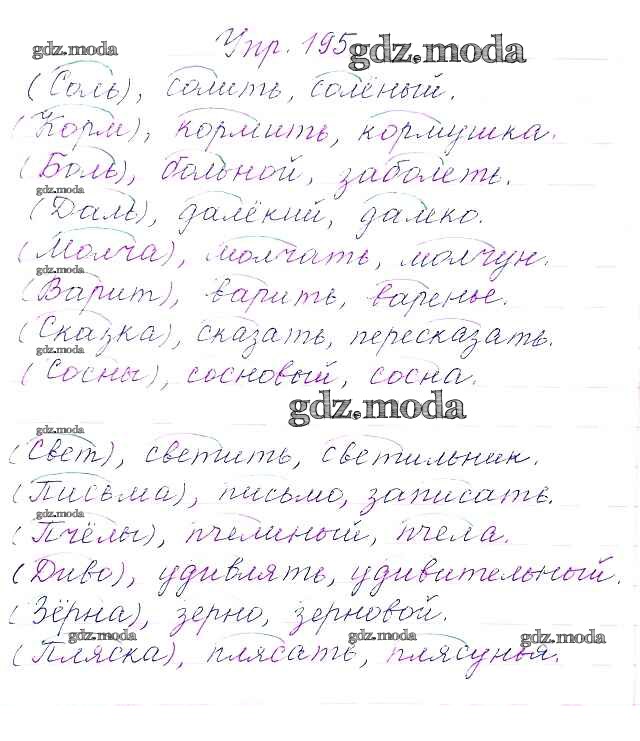 gdz.moda Упр. 195 gdz.moda
(Соль), солить, солёный.
(Корм), кормить, кормушка.
(Боль), больной, заболеть.
gdz.moda
(Даль), далёкий, далеко.
(Молча), молчать, молчун.
gdz.moda
(Варит), варить, варенье.
(Сказка), сказать, пересказать.
gdz.moda
(Сосны), сосновый, сосна.
gdz.moda
gdz.moda
(Свет), светить, светильник.
(Письма), письмо, записать.
gdz.moda
(Пчёлы), пчелиный, пчела.
(Диво), удивлять, удивительный.
(Зёрна), зерно, зерновой.
gdz.moda gdz.moda gdz.moda
(Пляска), плясать, плясунья.